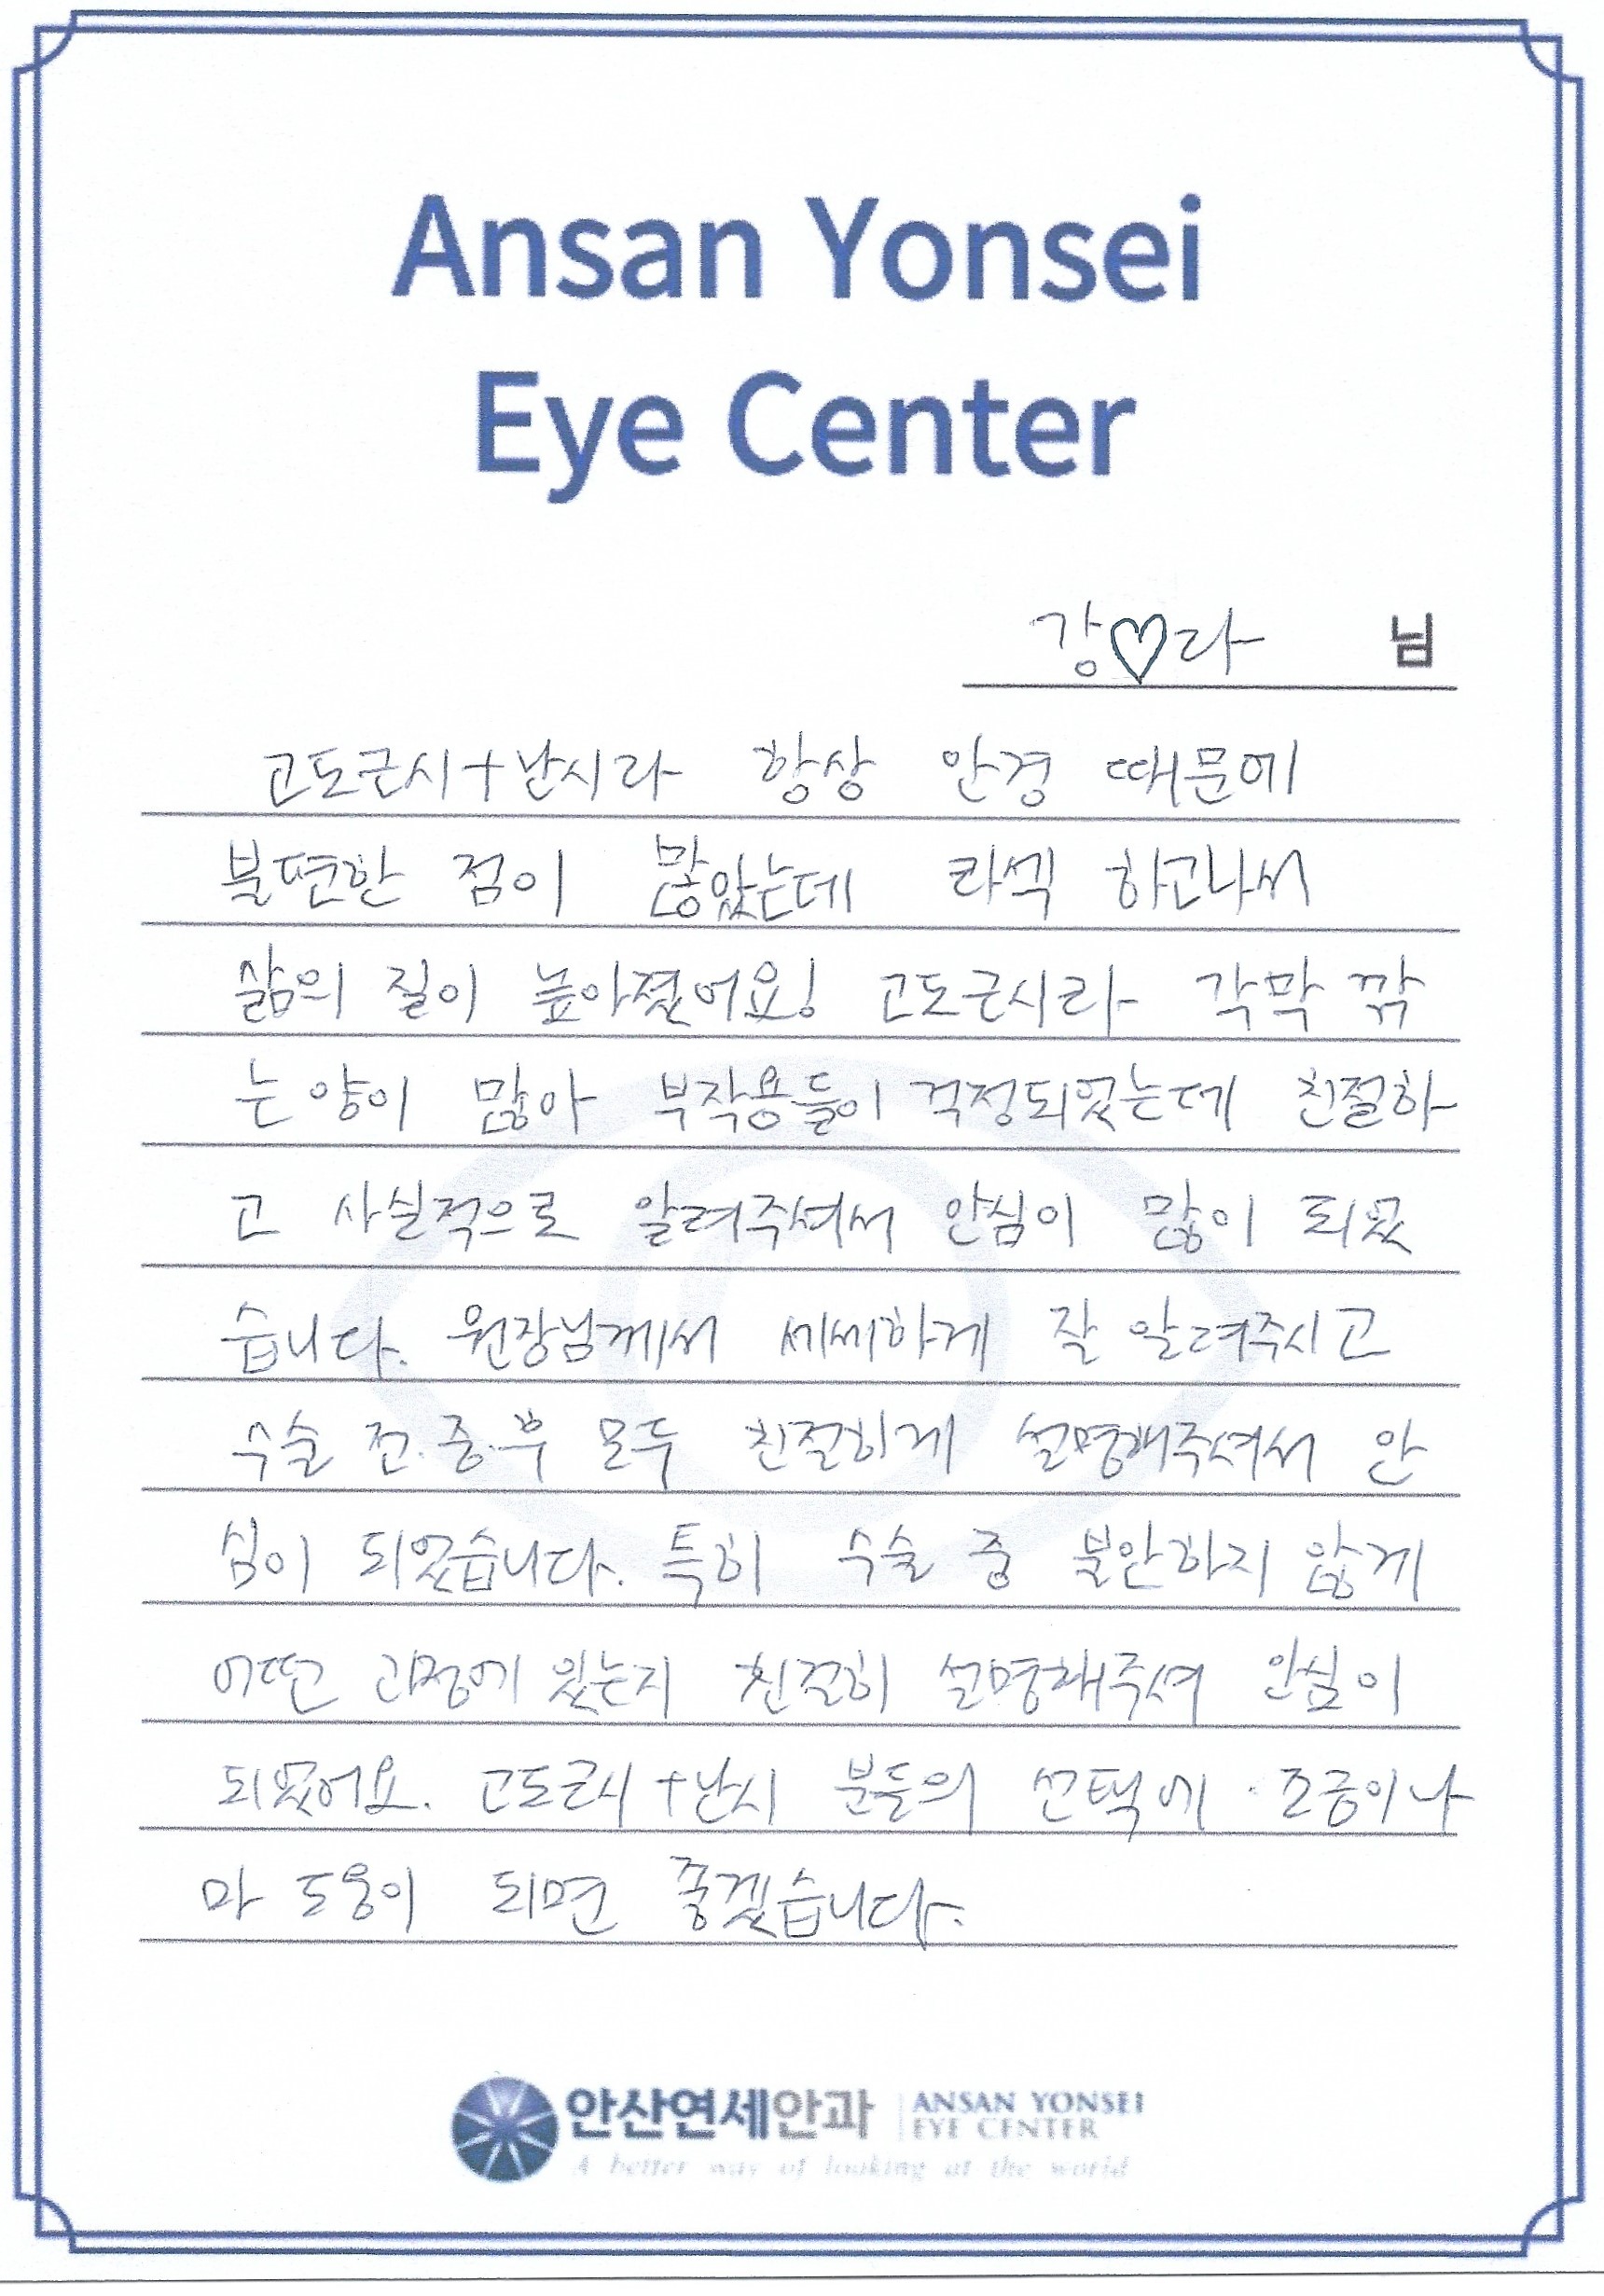 Ansan Yonsei
Eye Center
강♡라 님
고도근시+난시라 항상 안경 때문에
불편한 점이 많았는데 라섹 하고나서
삶의 질이 높아졌어요! 고도근시라 각막 깎
는 양이 많아 부작용들이 걱정되었는데 친절하
고 사실적으로 알려주셔서 안심이 많이 되었
습니다. 원장님께서 세세하게 잘 알려주시고
수술 전·중·후 모두 친절하게 설명해주셔서 안
심이 되었습니다. 특히 수술 중 불안하지 않게
어떤 과정에 있는지 친절히 설명해주셔 안심이
되었어요. 고도근시+난시 분들의 선택에 조금이나
마 도움이 되면 좋겠습니다.
안산연세안과 ANSAN YONSEI
EYE CENTER
A better way of looking at the world